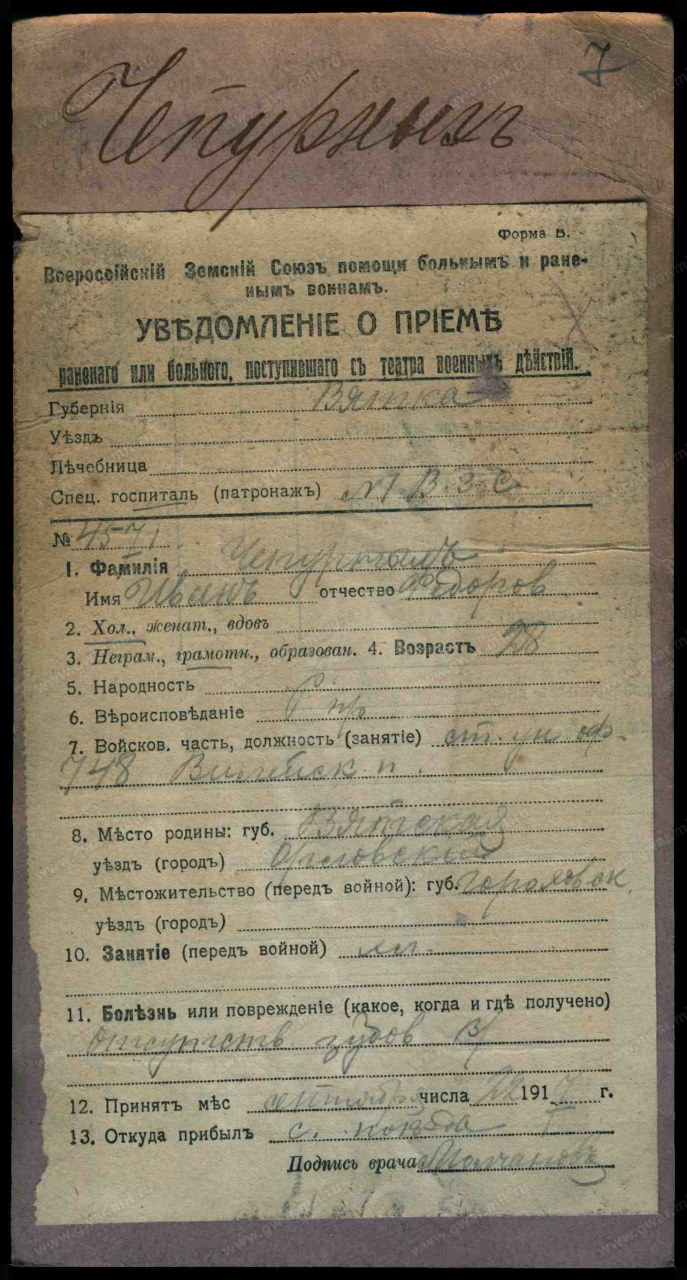 7
Чепурных
Форма В.
Всероссійскій Земскій Союзъ помощи больнымъ и ране-
нымъ воинамъ.
УВѢДОМЛЕНІЕ О ПРІЕМѢ
раненаго или больного, поступившаго съ театра военныхъ дѣйствій.
Губернія Вятка
Уѣздъ
Лѣчебница
Спец. госпиталь (патронажъ) №1 В.З.С.
№ 4571
1. Фамилія
Имя Иванъ отчество Федоров
2. Хол., женат., вдовъ
3. Неграм., грамотн., образован. 4. Возрастъ 28
5. Народность
6. Вѣроисповѣданіе пр
7. Войсков. часть, должность (занятіе) ст. ун оф.
748 п.
8. Мѣсто родины: губ. Вятская
уѣздъ (городъ) Орловскій
9. Мѣстожительство (передъ войной): губ.
уѣздъ (городъ)
10. Занятіе (передъ войной)
11. Болѣзнь или поврежденіе (какое, когда и гдѣ получено)
Отсутств зубов
12. Принятъ мѣс сентября числа 191 г.
13. Откуда прибылъ с поезда
Подпись врача Молчановъ